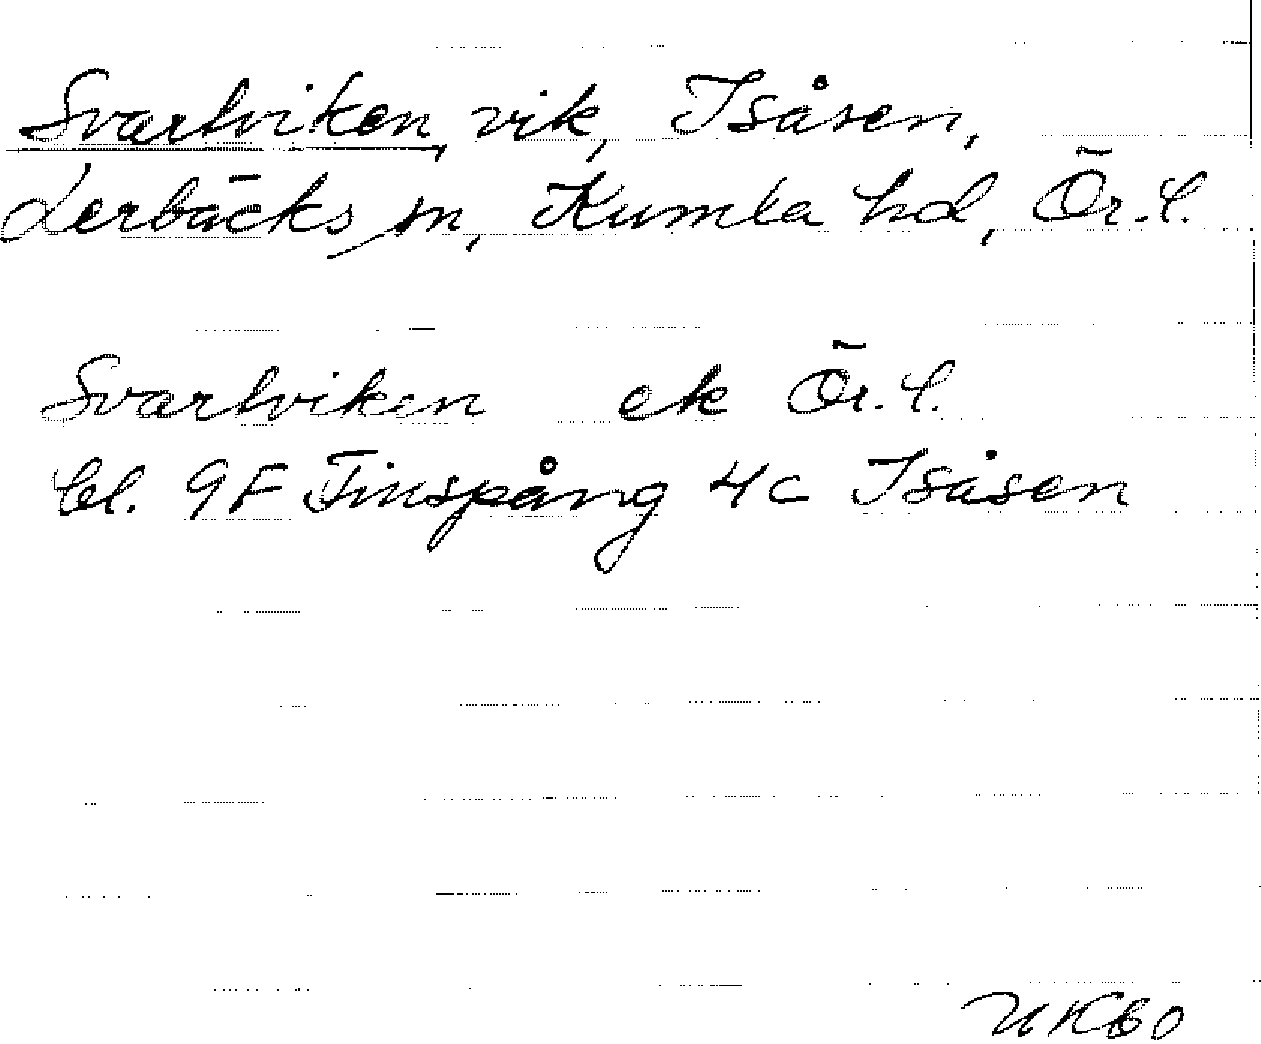 Svartviken, vik, Isåsen,
Lerbäcks sn, Kumla hd, Ör.l.
Svartviken ek Ör.l.
bl. 9F Finspång 4c Isåsen